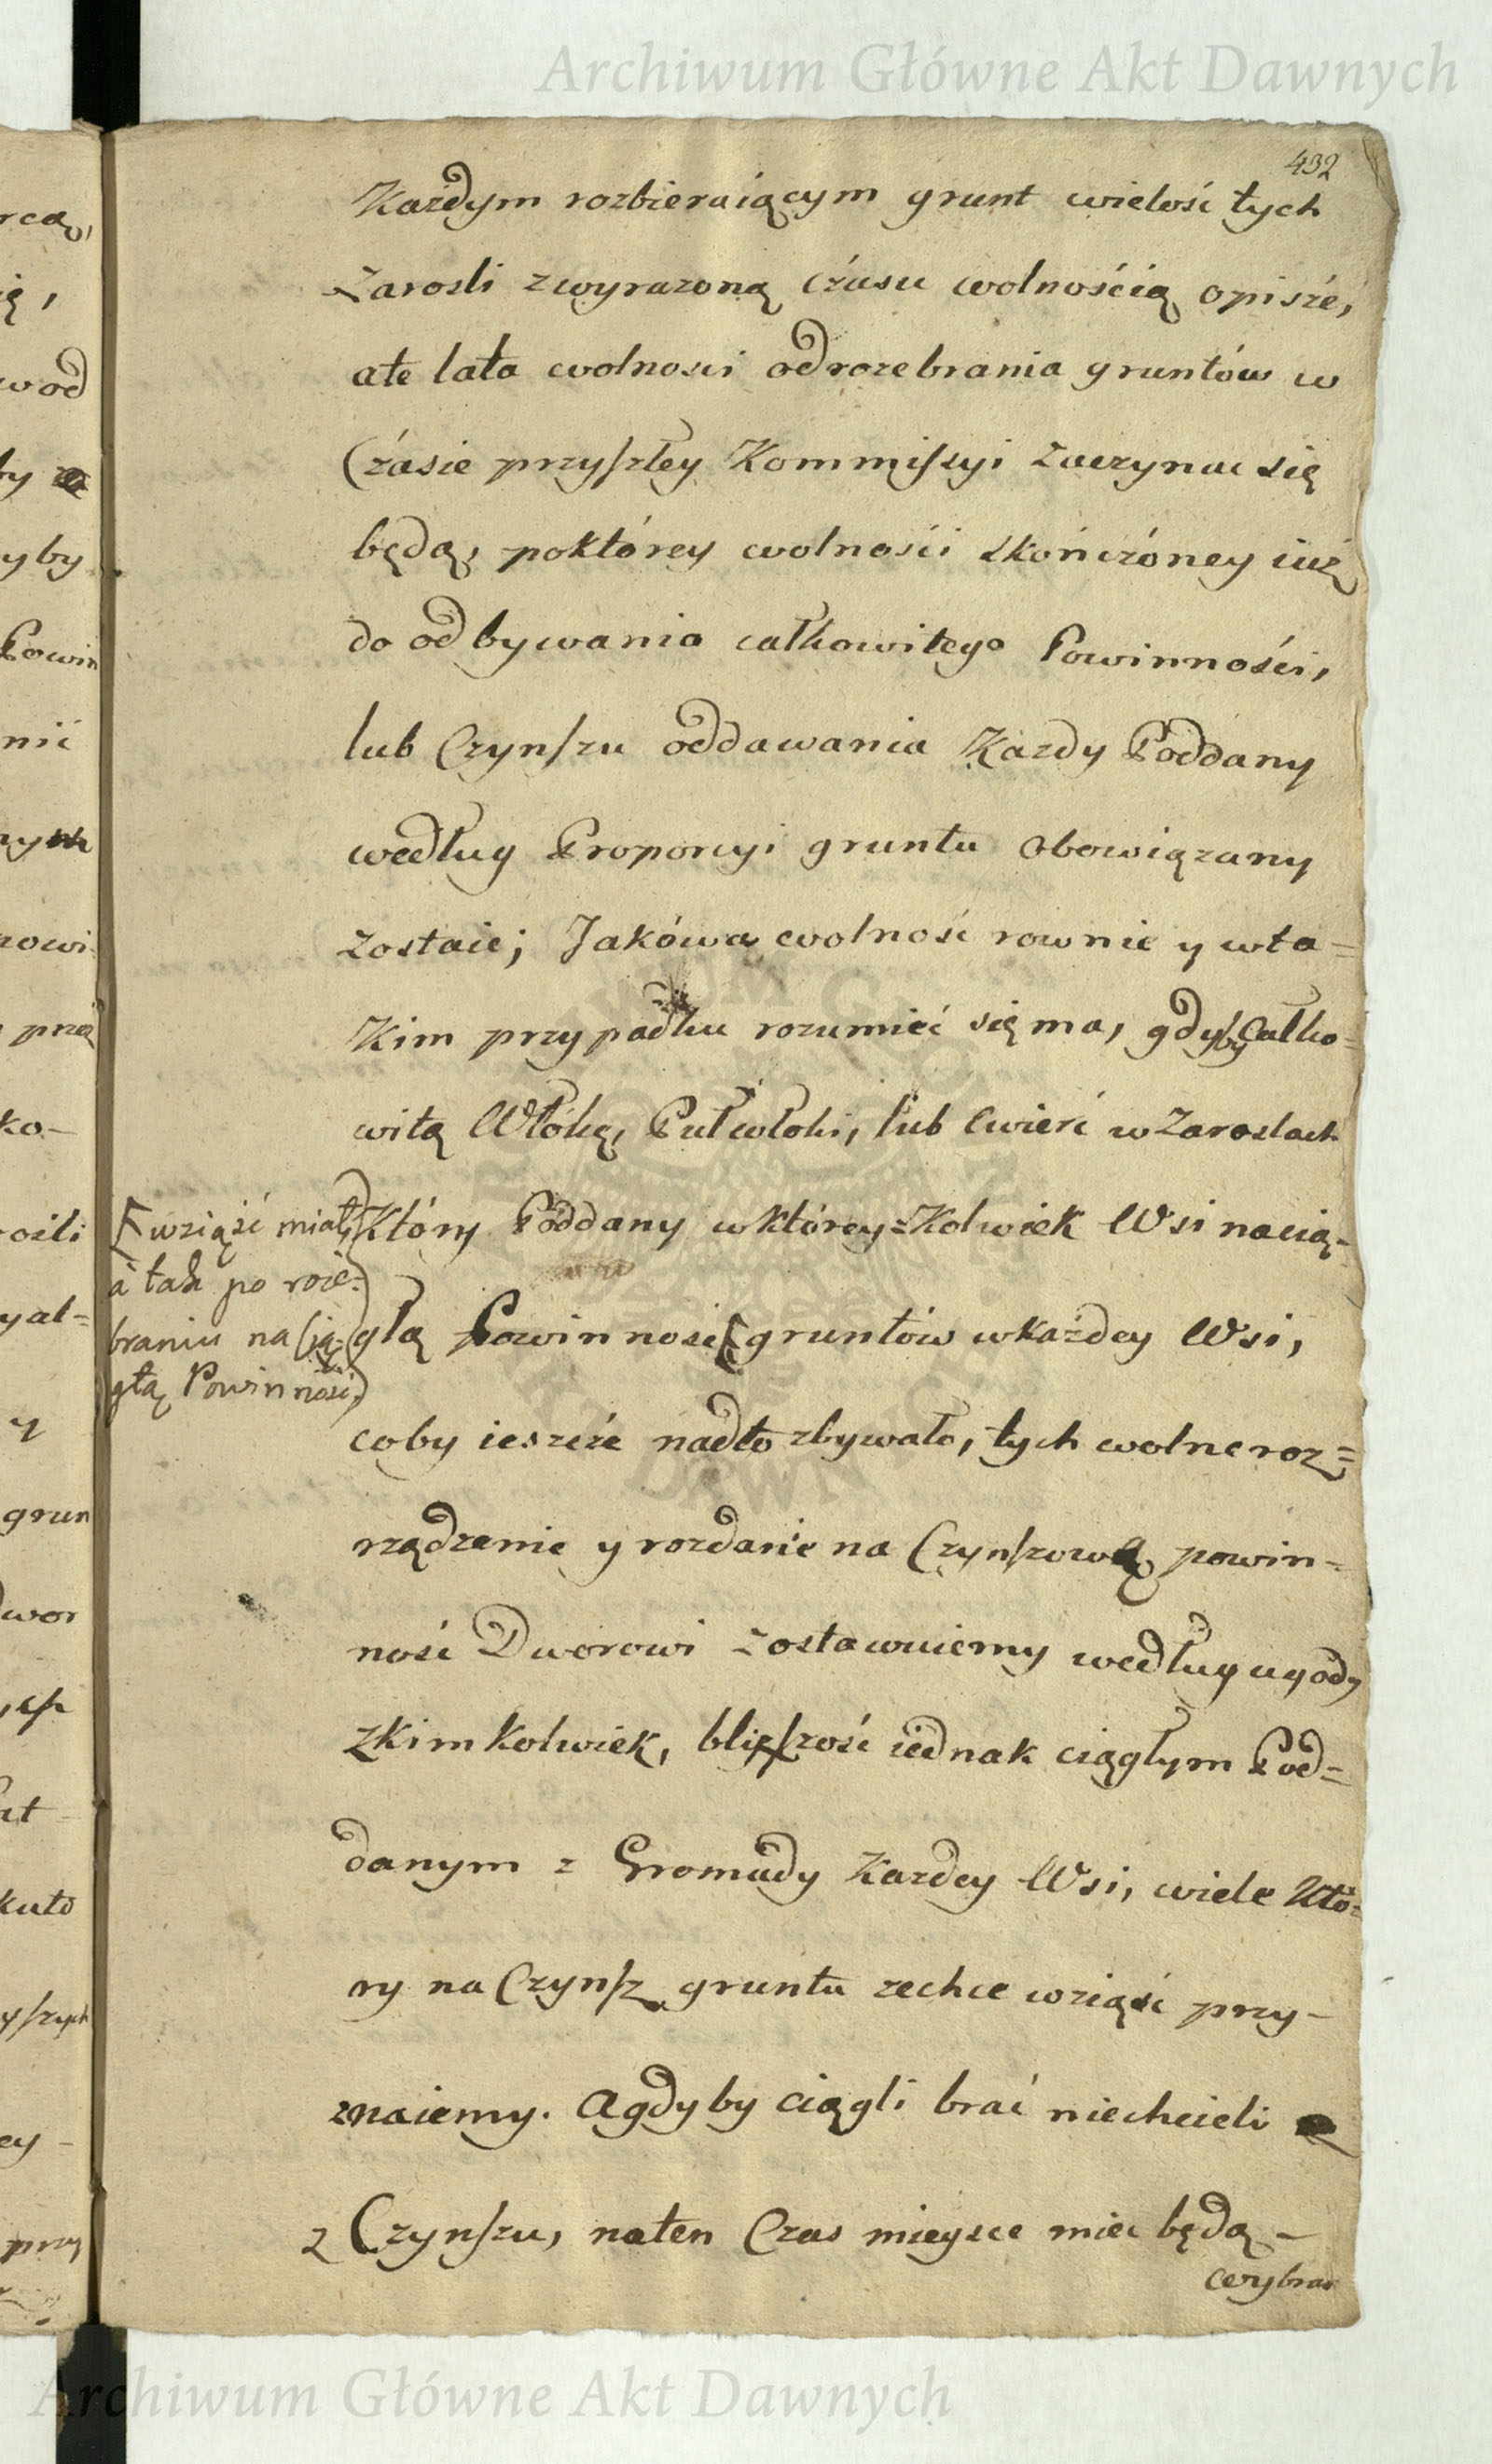 Archiwum Główne Akt Dawnych
432
Każdym rozbieraiącym grunt wielość tych
Zarosli zwyrazoną cźasu wolnośćią opisźe,
ate lata wolnosci odrozebrania gruntów w
Cźasie przyszłey Kommissyi Zaczynac się
będą, poktórey wolnośći skońcżoney iuż
do odbywania całkowitego Powinnośći,
lub Czynszu oddawania Każdy Poddany
według Proporcyi gruntu obowiązany
zostaie; Jakówa wolność rownie y wta=
Kim przypadku rozumieć się ma, gdyby Całko=
witą Włókę, Pułwłoki, lub Cwierć wZaroslach
Który Poddany wktórey=Kolwiek Wsi nacią=
[wziąść miał,
a tak po roze=
braniu na Cią=
głą Powinność,
głą Powinność [gruntów wkażdey Wsi,
coby ieszcźe nadto zbywało, tych wolne roz=
rządzenie y rozdanie na Czynszową powin=
ność Dworowi zostawuiemy według ugody
zkimkolwiek, bliższość iednak ciągłym Pod=
danym z Gromady Każdey Wsi, wiele któ=
ry na Czynsz gruntu zechce wziąść przy=
znaiemy. Agdyby ciągli brać niechcieli
z Czynszu, naten Czas mieysce miec będą -
rcą,
ię,
wod
by
yby
Powin
nić
nowi
przez
ko-
rośli
yał=
y
grun
dwor
kuto
yszych
ey -
przy
Archiwum Główne Akt Dawnych